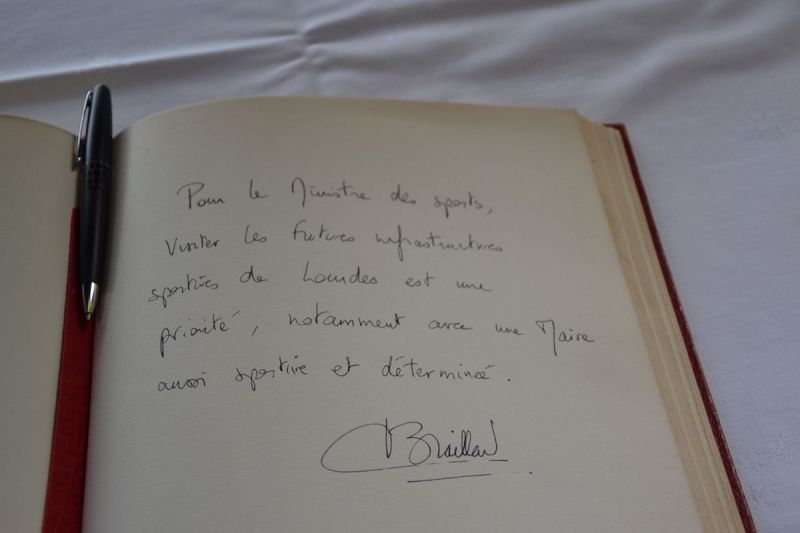 Pour le Ministre des sports,
Visiter les futures infrastructures
sportives de Lourdes est une
priorité, notamment avec une Maire
aussi sportive et déterminée.
Braillard